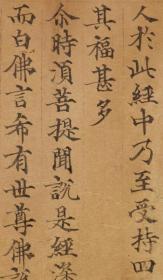 人於此經中乃至受持四
其福甚多
尒時湏菩提聞說是經深
而白佛言希有世尊佛說